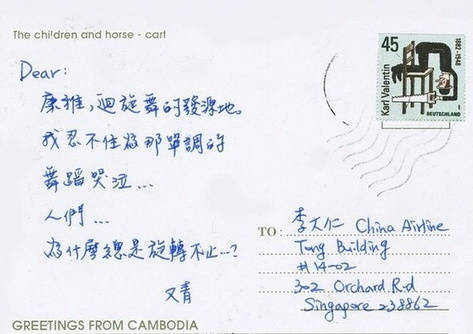 The children and horse - cart
Dear:
康雅，迴旋舞的發源地。
我忍不住為那單調的
舞蹈哭泣…
人們…
為什麼總是旋轉不止…?
又青
GREETINGS FROM CAMBODIA
45
Karl Valentin
1882-1948
DEUTSCHLAND
TO:
李天仁 China Airline
Tung Building
#14-02
302 Orchard Rd
Singapore 238862